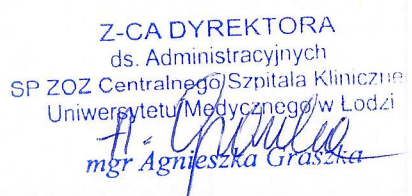 Z-CA DYREKTORA
ds. Administracyjnych
SP ZOZ Centralnego Szpitala Kliniczne
Uniwersytetu Medycznego w Łodzi
mgr Agnieszka Graszka